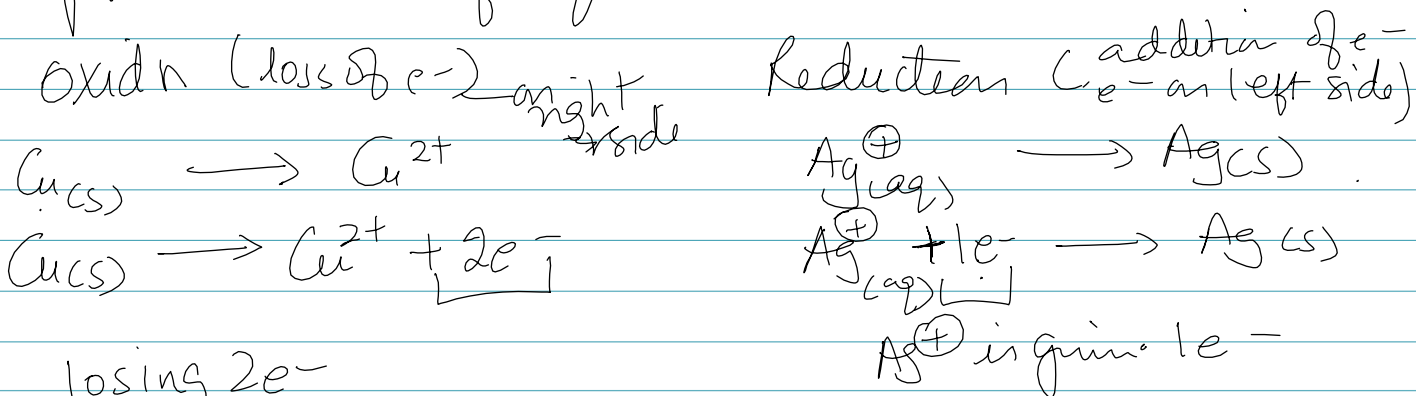 oxidn (loss of e-) on right side
Cu(s) ⟶ Cu²⁺
Cu(s) ⟶ Cu²⁺ + 2e⁻
losing 2e-
Reduction (addition of e⁻
e⁻ on left side)
Ag⁺(aq) ⟶ Ag(s)
Ag⁺(aq) + 1e⁻ ⟶ Ag(s)
Ag⁺ is 1e⁻